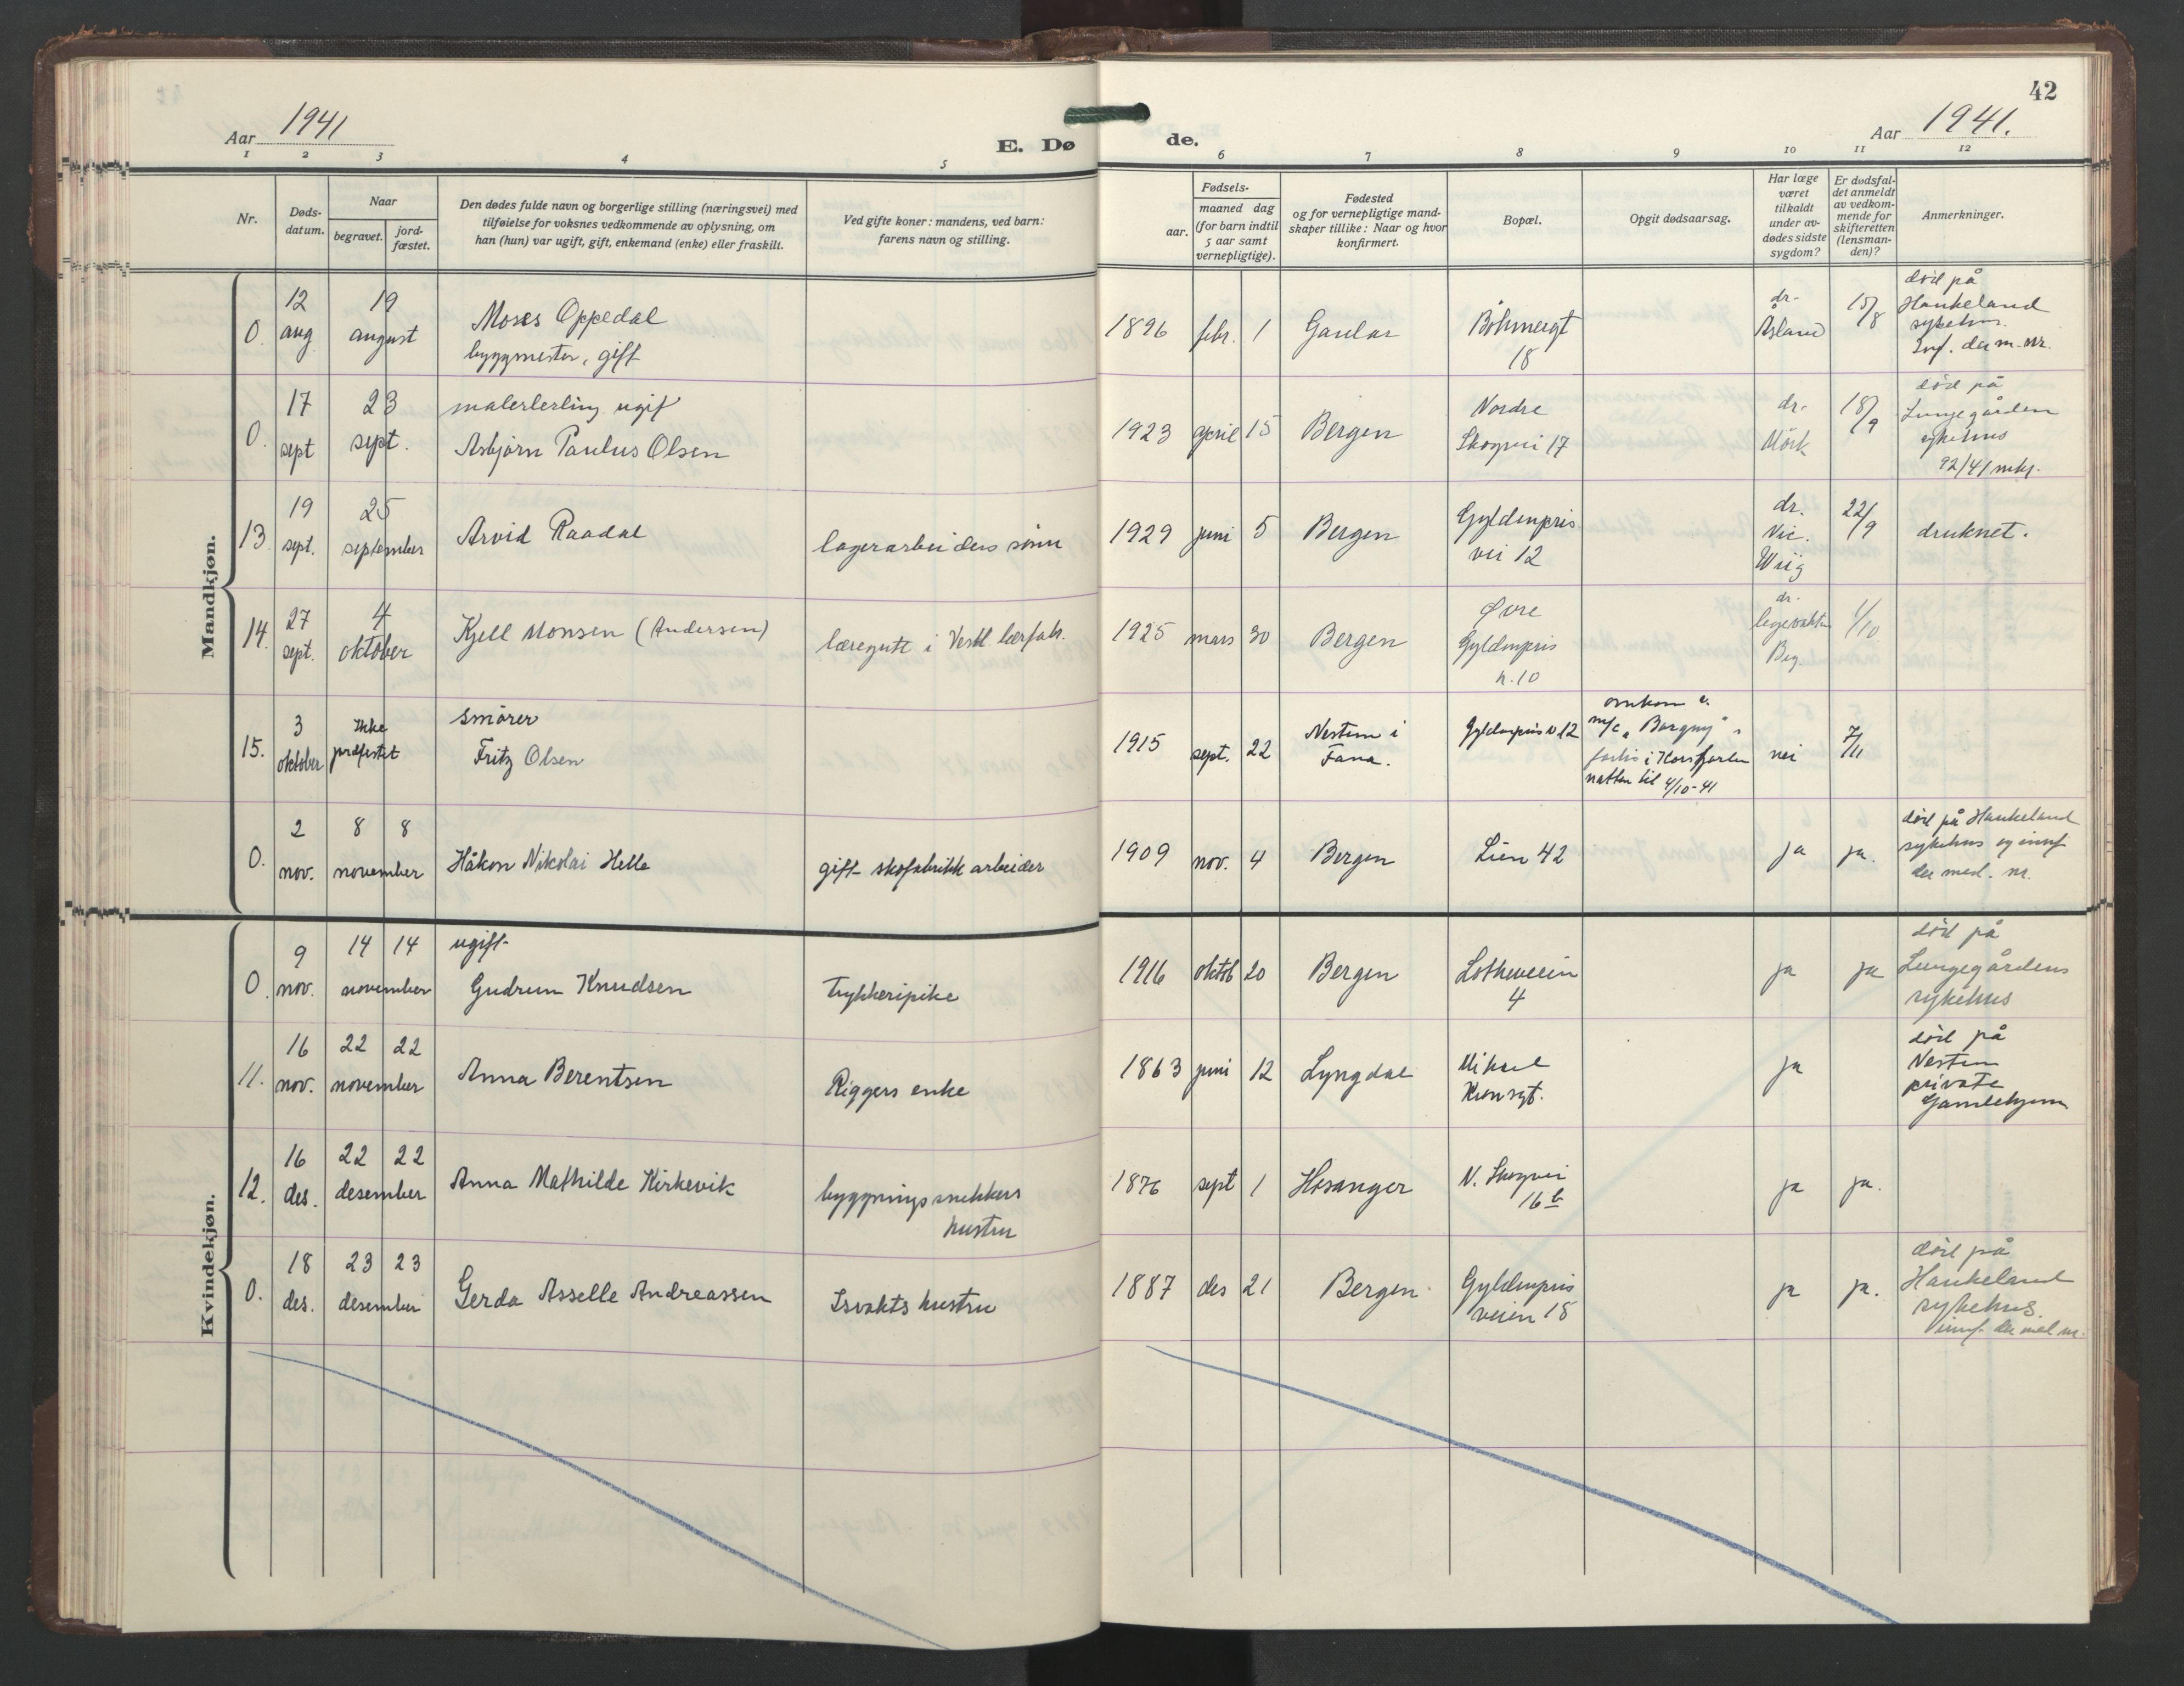 42
Aar 1941
E. Dø
de.
Aar 1941.
1 2 3 4 5 6 7 8 9 10 11 12
Nr.
Døds-
datum.
Naar
begravet.
jord-
fæstet.
Den dødes fulde navn og borgerlige stilling (næringsvei) med
tilføielse for voksnes vedkommende av oplysning, om
han (hun) var ugift, gift, enkemand (enke) eller fraskilt.
Ved gifte koner: mandens, ved barn:
farens navn og stilling.
Fødsels-
aar.
maaned dag
(for barn indtil
5 aar samt
vernepligtige).
Fødested
og for vernepligtige mand-
skaper tillike: Naar og hvor
konfirmert.
Bopæl.
Opgit dødsaarsag.
Har læge
været
tilkaldt
under av-
dødes sidste
sygdom?
Er dødsfal-
det anmeldt
av vedkom-
mende for
skifteretten
(lensman-
den)?
Anmerkninger.
Mandkjøn.
0.
12
aug
19
august
Moses Oppedal
byggmester, gift
1896 febr. 1
Gaular
Böhmergt
18
dr.
Åsland
15/8
död på
Haukeland
sykehus.
Inf. der m. nr.
0.
17
sept
23
sept.
malerlerling ugif
Asbjørn Paulus Olsen
1923 april 15
Bergen
Nordre
Skogvei 17
dr.
Mörk
18/9
död på
Lungegården
sykehus
92/41 mkg.
13.
19
sept.
25
september
Arvid Raadal
lagerarbeiders sönn
1929 juni 5
Bergen
Gyldenpris
vei 12
dr.
Nic.
Wiig
22/9
druknet.
14.
27
sept.
4
oktober
Kjell Monsen (Andersen)
læregutt i Vestl. lærfabr.
1925 mars 30
Bergen
Øvre
Gyldenpris
n. 10
dr.
legevakten
Beg.
1/10
15.
3
oktober
Ikke
smörer
Fritz Olsen
1915 sept. 22
Nestun i
Fana.
Gyldenpris v 12
omkom v.
m/c „Borgny"s
forlis i Korsfjorden
natten til 4/10-41
nei
7/11
0.
2
nov.
8 8
november
Håkon Nikolai Helle
gift skofabrikk arbeider
1909 nov. 4
Bergen
Lien 42
ja
ja.
död på Haukeland
sykehus og innf
der med. nr.
Kvindekjøn.
0.
9
nov.
14 14
november
ugift
Gudrun Knudsen
Trykkeripike
1916 oktob 20
Bergen
Lotheveien
4
ja
ja
död på
Lungegårdens
sykehus
11.
16
nov.
22 22
november
Anna Berentsen
Riggers enke
1863 juni 12
Lyngdal
Mikael
Kronsgt.
ja
död på
Nestun
private
Gamlehjem
12.
16
des.
22 22
desember
Anna Mathilde Kirkevik
byggningssnekkers
hustru
1876 sept 1
Hosanger
N. Skogvei
16 b
ja
ja.
0.
18
des.
23 23
desember
Gerda Asselle Andreassen
Isvakts hustru
1887 des 21
Bergen
Gyldenpris
veien 18
ja
ja.
död på
Haukeland
sykehus.
innf. der med nr.